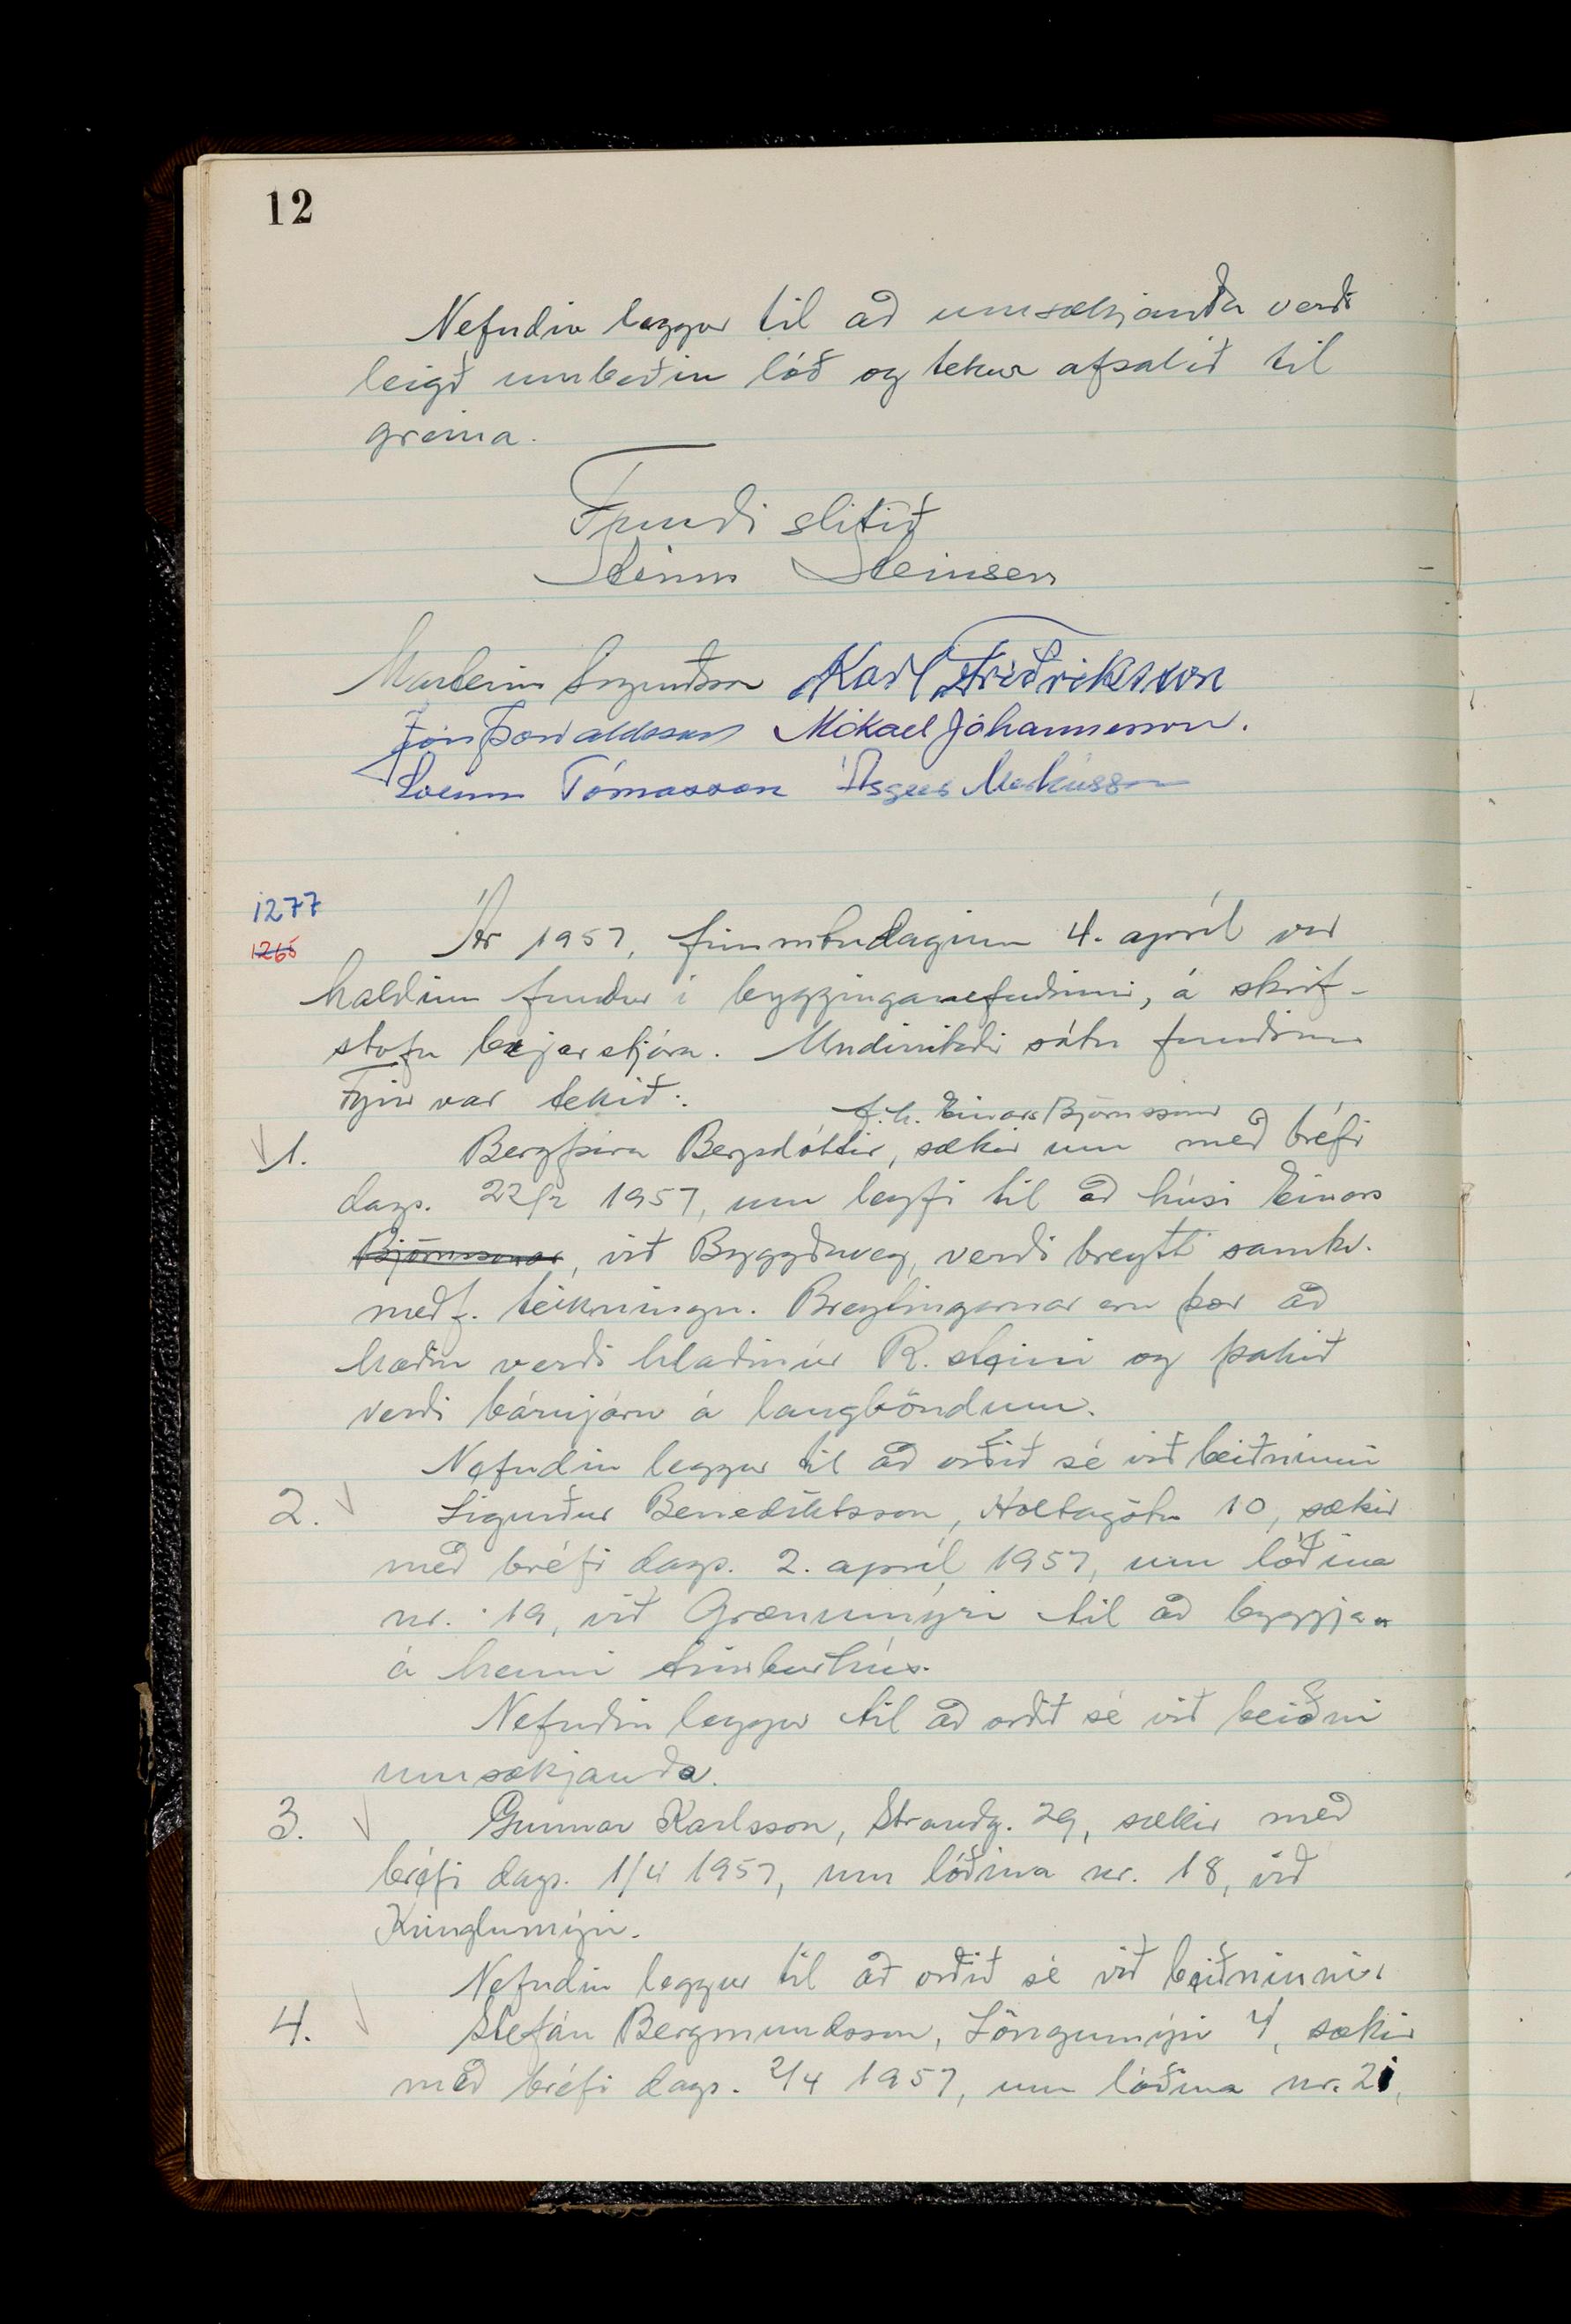 12
Nefndin leggur til að umsækjanda verði
leigð umbeðin lóð og tekur afsalið til
greina.
Fundi slitið
Steinn Steinsen
Marteinn Sigurðsson Karl Friðriksson
Jón Þorvaldsson Mikael Jóhannesson.
Sveinn Tómasson Ásgeir Markússon
1277
1265
Ár 1957, fimmtudaginn 4. apríl var
haldinn fundur í bygginganefndinni, á skrif-
stofu bæjarstjóra. Undirritaðir sátu fundinn
Fyrir var tekið:
f.h. Einars Björnssonar
1. Bergþóra Bergsdóttir, sækir um með bréfi
dags. 22/2 1957, um leyfi til að húsi Einars
Björnssonar, við Byggðaveg, verði breytt samkv.
meðf. teikningu. Breytingarnar eru þær að
hæðin verði hlaðin úr R. steini og þakið
verði bárujárn á langböndum.
Nefndin leggur til að orðið sé við beiðninni
2. Sigurður Benediktsson, Holtagötu 10, sækir
með bréfi dags. 2. apríl 1957, um lóðina
nr. 19, við Grænumýri til að byggja
á henni timburhús.
Nefndin leggur til að orðið sé við beiðni
umsækjanda.
3. Gunnar Karlsson, Strandg. 29, sækir með
bréfi dags. 1/4 1957, um lóðina nr. 18, við
Kringlumýri.
Nefndin leggur til að orðið sé við beiðninni.
4. Stefán Bergmundsson, Löngumýri 4, sækir
með bréfi dags. 2/4 1957, um lóðina nr. 21,